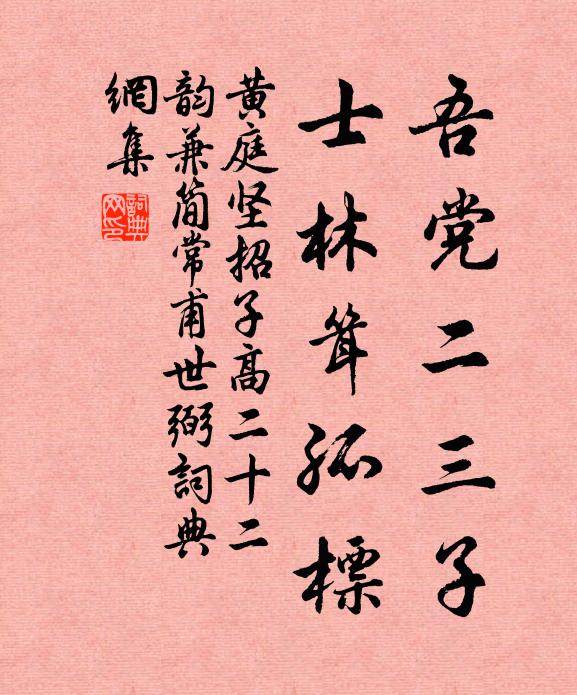 吾党二三子
士林耸孤標
黄庭坚招子高二十二
韵兼简常甫世弼詞典
網集
詞典
网印